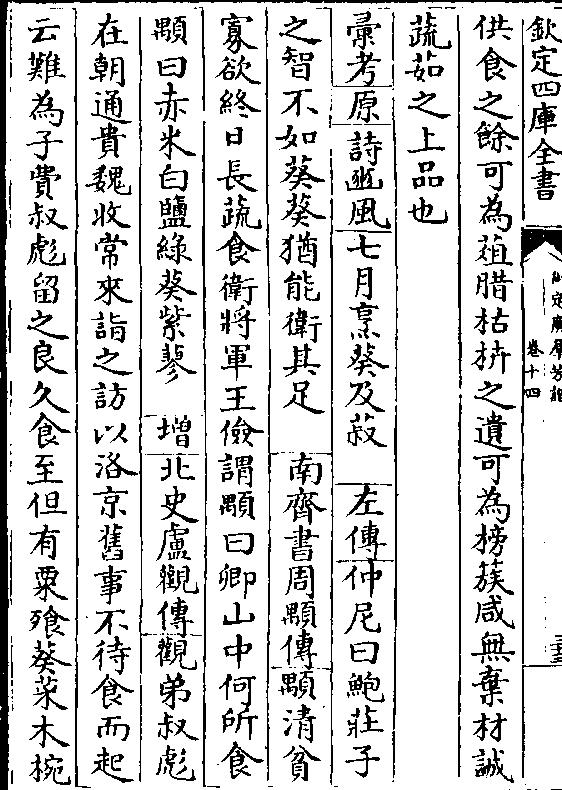 欽定四庫全書
卷十四
供食之餘可為葅腊枯枿之遺可為榜蔟咸無棄材誠
蔬茹之上品也
彙考原詩豳風七月烹葵及菽　左傳仲尼曰鮑莊子
之智不如葵葵猶能衛其足　南齊書周顒傳顒清貧
寡欲終日長蔬食衛將軍王儉謂顒曰卿山中何所食
顒曰赤米白鹽綠葵紫蓼　增北史盧觀傳觀弟叔彪
在朝通貴魏收常來詣之訪以洛京舊事不待食而起
云難為子費叔彪留之良久食至但有粟飱葵菜木椀